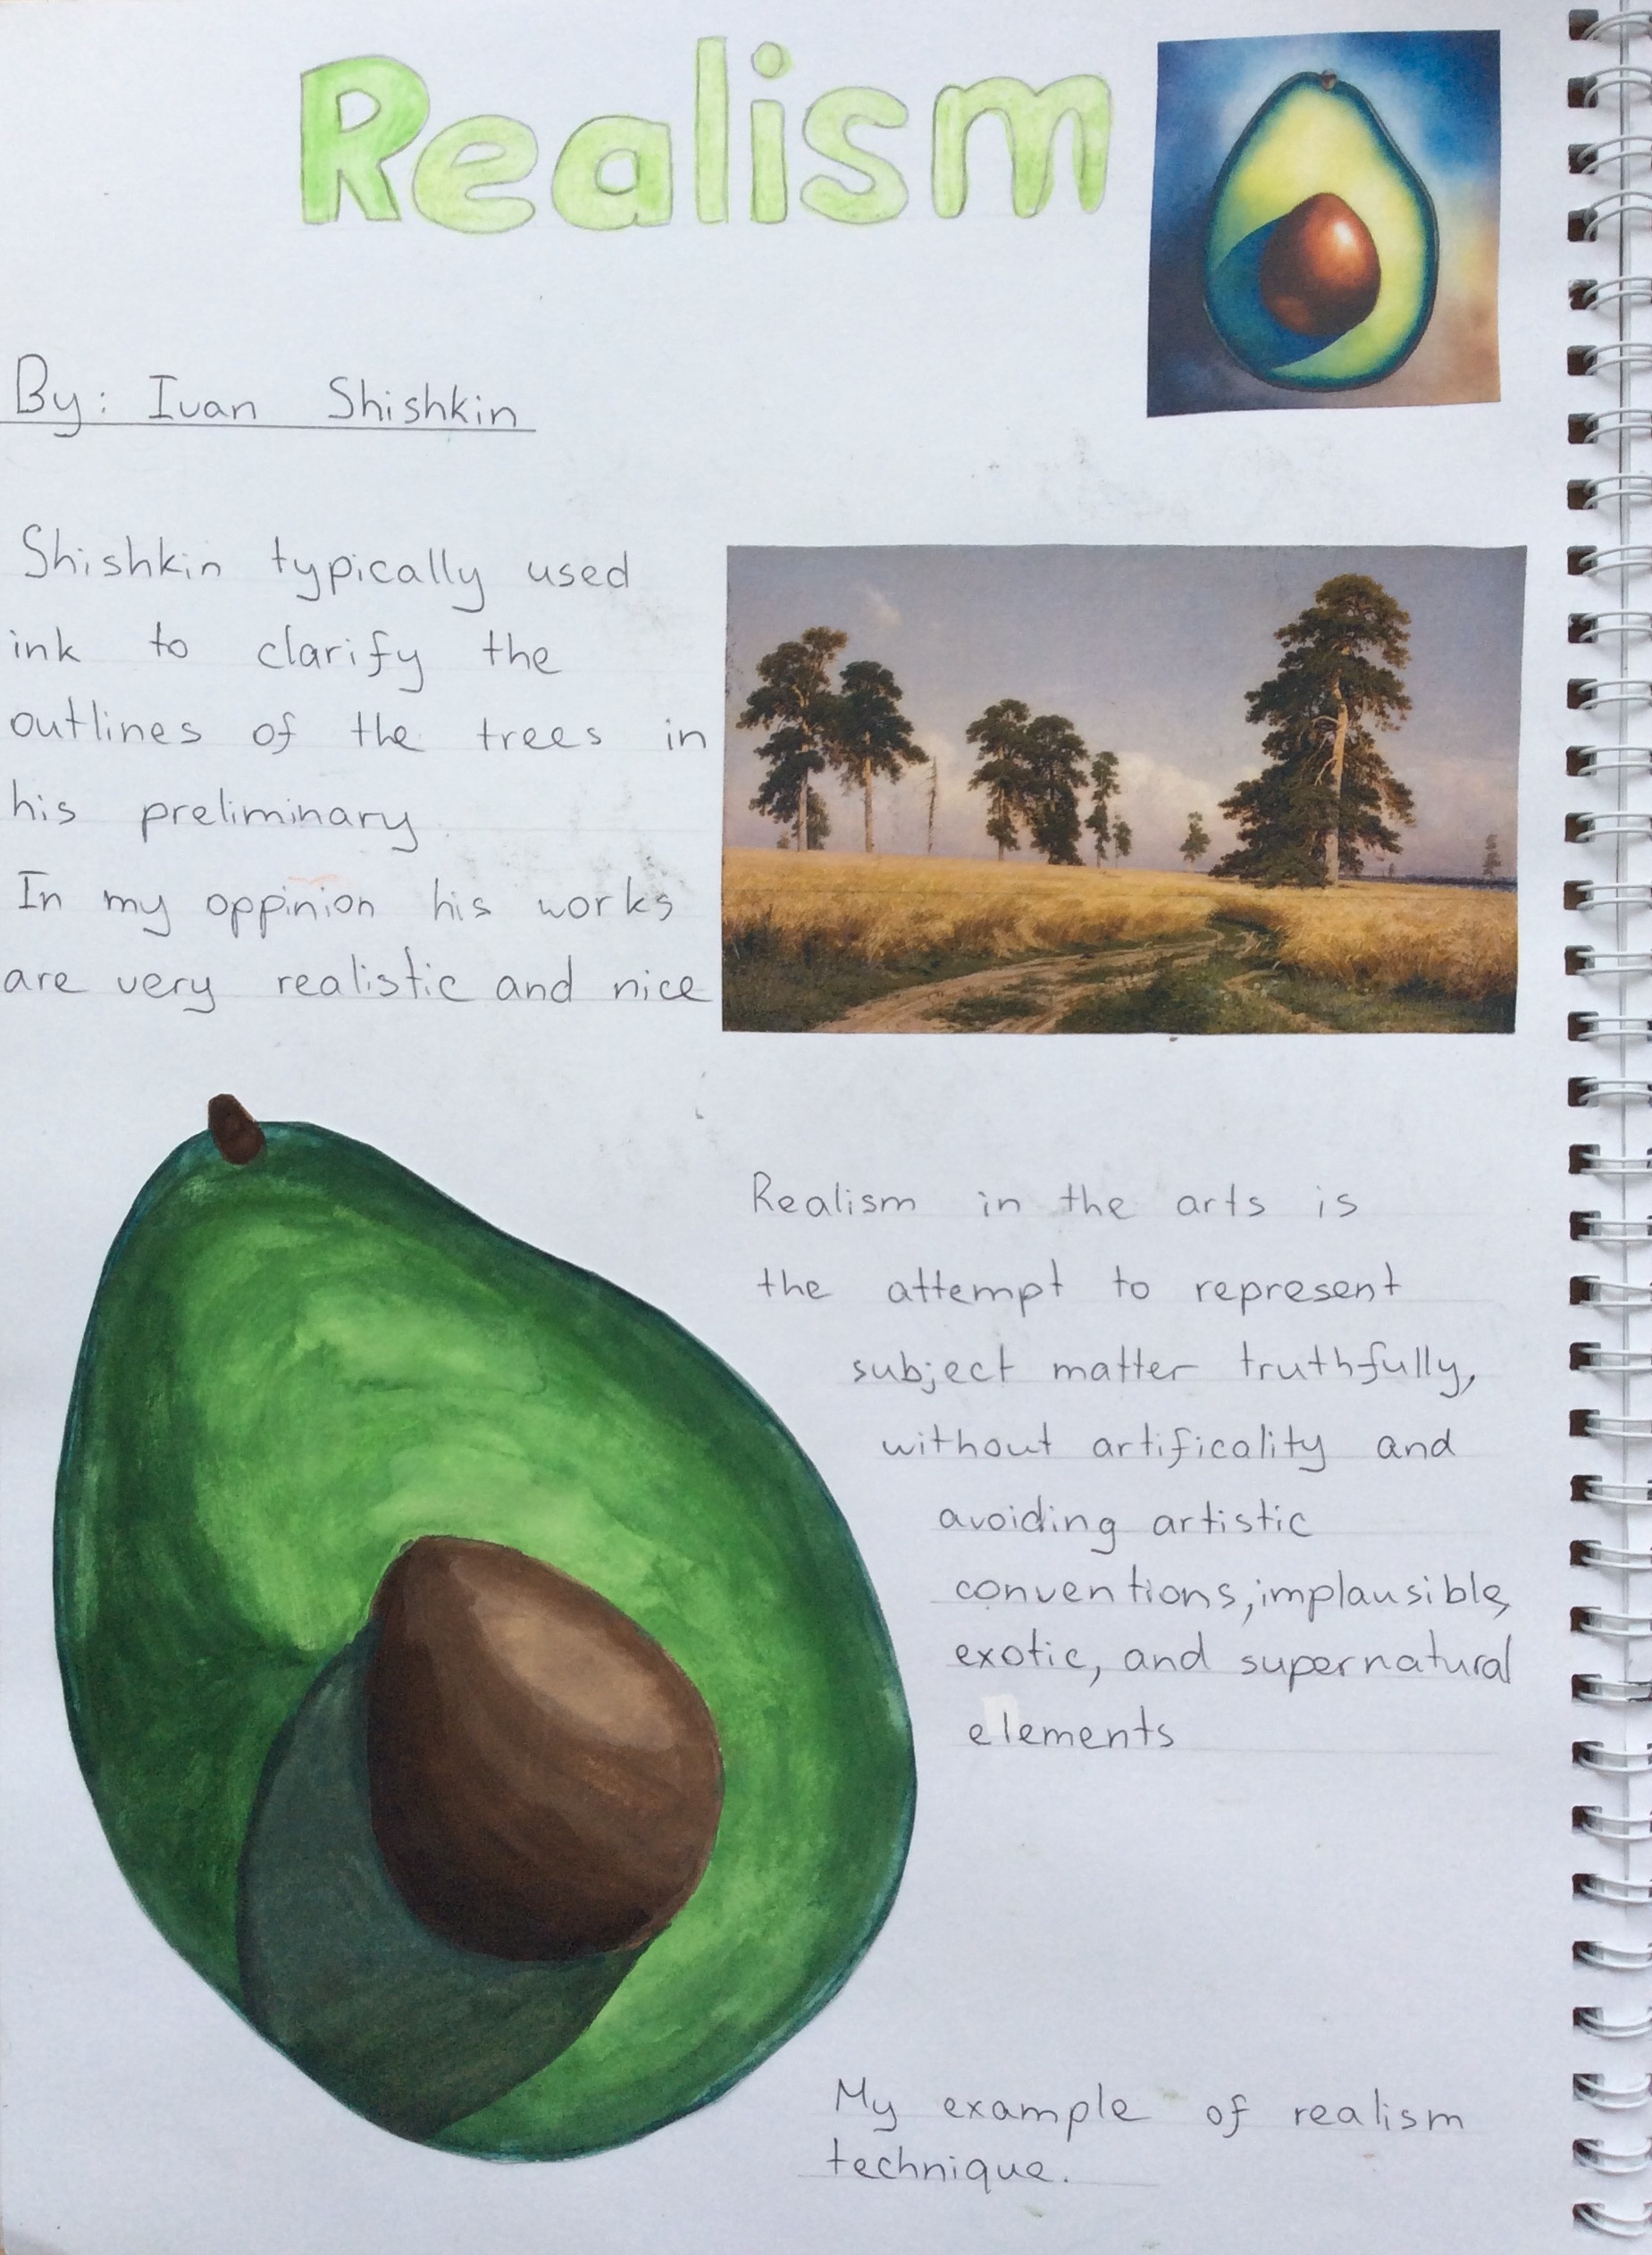 Realism
By: Ivan Shishkin
Shishkin typically used
ink to clarify the
outlines of the trees in
his preliminary
In my oppinion his works
are very realistic and nice
Realism in the arts is
the attempt to represent
subject matter truthfully,
without artificality and
avoiding artistic
conventions, implausible,
exotic, and supernatural
elements
My example of realism
technique.